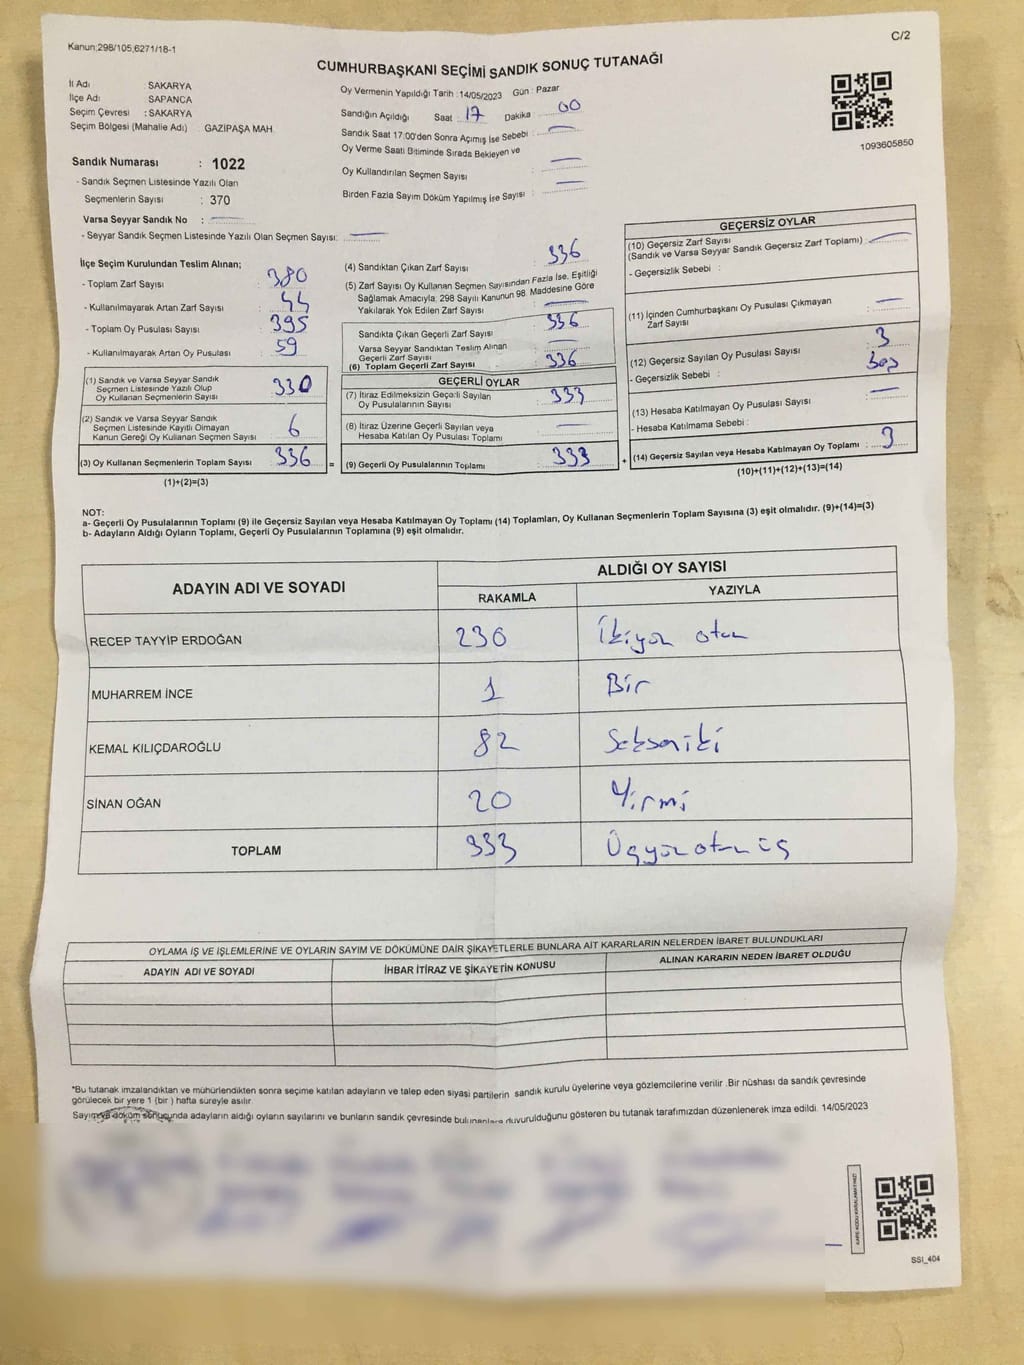 Kanun;298/105,6271/18-1
C/2
CUMHURBAŞKANI SEÇİMİ SANDIK SONUÇ TUTANAĞI
İl Adı : SAKARYA
İlçe Adı : SAPANCA
Seçim Çevresi : SAKARYA
Seçim Bölgesi (Mahalle Adı) : GAZİPAŞA MAH.
Sandık Numarası : 1022
- Sandık Seçmen Listesinde Yazılı Olan
Seçmenlerin Sayısı : 370
Varsa Seyyar Sandık No :
- Seyyar Sandık Seçmen Listesinde Yazılı Olan Seçmen Sayısı:
Oy Vermenin Yapıldığı Tarih : 14/05/2023 Gün : Pazar
Sandığın Açıldığı Saat : 17 Dakika : 00
Sandık Saat 17:00'den Sonra Açılmış İse Sebebi :
Oy Verme Saati Bitiminde Sırada Bekleyen ve
Oy Kullandırılan Seçmen Sayısı :
Birden Fazla Sayım Döküm Yapılmış İse Sayısı :
1093605850
İlçe Seçim Kurulundan Teslim Alınan;
- Toplam Zarf Sayısı : 380
- Kullanılmayarak Artan Zarf Sayısı : 44
- Toplam Oy Pusulası Sayısı : 395
- Kullanılmayarak Artan Oy Pusulası : 59
(1) Sandık ve Varsa Seyyar Sandık
Seçmen Listesinde Yazılı Olup
Oy Kullanan Seçmenlerin Sayısı 330
(2) Sandık ve Varsa Seyyar Sandık
Seçmen Listesinde Kayıtlı Olmayan
Kanun Gereği Oy Kullanan Seçmen Sayısı 6
(3) Oy Kullanan Seçmenlerin Toplam Sayısı 336 =
(1)+(2)=(3)
(4) Sandıktan Çıkan Zarf Sayısı 336
(5) Zarf Sayısı Oy Kullanan Seçmen Sayısından Fazla İse, Eşitliği
Sağlamak Amacıyla; 298 Sayılı Kanunun 98. Maddesine Göre
Yakılarak Yok Edilen Zarf Sayısı
Sandıkta Çıkan Geçerli Zarf Sayısı 336
Varsa Seyyar Sandıktan Teslim Alınan
Geçerli Zarf Sayısı
(6) Toplam Geçerli Zarf Sayısı 336
GEÇERLİ OYLAR
(7) İtiraz Edilmeksizin Geçerli Sayılan
Oy Pusulalarının Sayısı 333
(8) İtiraz Üzerine Geçerli Sayılan veya
Hesaba Katılan Oy Pusulası Toplamı
(9) Geçerli Oy Pusulalarının Toplamı 333 +
GEÇERSİZ OYLAR
(10) Geçersiz Zarf Sayısı
(Sandık ve Varsa Seyyar Sandık Geçersiz Zarf Toplamı) :
- Geçersizlik Sebebi :
(11) İçinden Cumhurbaşkanı Oy Pusulası Çıkmayan
Zarf Sayısı
(12) Geçersiz Sayılan Oy Pusulası Sayısı 3
- Geçersizlik Sebebi : boş
(13) Hesaba Katılmayan Oy Pusulası Sayısı
- Hesaba Katılmama Sebebi :
(14) Geçersiz Sayılan veya Hesaba Katılmayan Oy Toplamı 3
(10)+(11)+(12)+(13)=(14)
NOT:
a- Geçerli Oy Pusulalarının Toplamı (9) ile Geçersiz Sayılan veya Hesaba Katılmayan Oy Toplamı (14) Toplamları, Oy Kullanan Seçmenlerin Toplam Sayısına (3) eşit olmalıdır. (9)+(14)=(3)
b- Adayların Aldığı Oyların Toplamı, Geçerli Oy Pusulalarının Toplamına (9) eşit olmalıdır.
ADAYIN ADI VE SOYADI
ALDIĞI OY SAYISI
RAKAMLA YAZIYLA
RECEP TAYYİP ERDOĞAN 230 İkiyüz otuz
MUHARREM İNCE 1 Bir
KEMAL KILIÇDAROĞLU 82 Seksen iki
SİNAN OĞAN 20 Yirmi
TOPLAM 333 Üçyüz otuz üç
OYLAMA İŞ VE İŞLEMLERİNE VE OYLARIN SAYIM VE DÖKÜMÜNE DAİR ŞİKAYETLERLE BUNLARA AİT KARARLARIN NELERDEN İBARET BULUNDUKLARI
ADAYIN ADI VE SOYADI İHBAR İTİRAZ VE ŞİKAYETİN KONUSU ALINAN KARARIN NEDEN İBARET OLDUĞU
*Bu tutanak imzalandıktan ve mühürlendikten sonra seçime katılan adayların ve talep eden siyasi partilerin sandık kurulu üyelerine veya gözlemcilerine verilir .Bir nüshası da sandık çevresinde
görülecek bir yere 1 (bir ) hafta süreyle asılır.
Sayım ve döküm sonucunda adayların aldığı oyların sayılarını ve bunların sandık çevresinde bulunanlara duyurulduğunu gösteren bu tutanak tarafımızdan düzenlenerek imza edildi. 14/05/2023
SSI_404